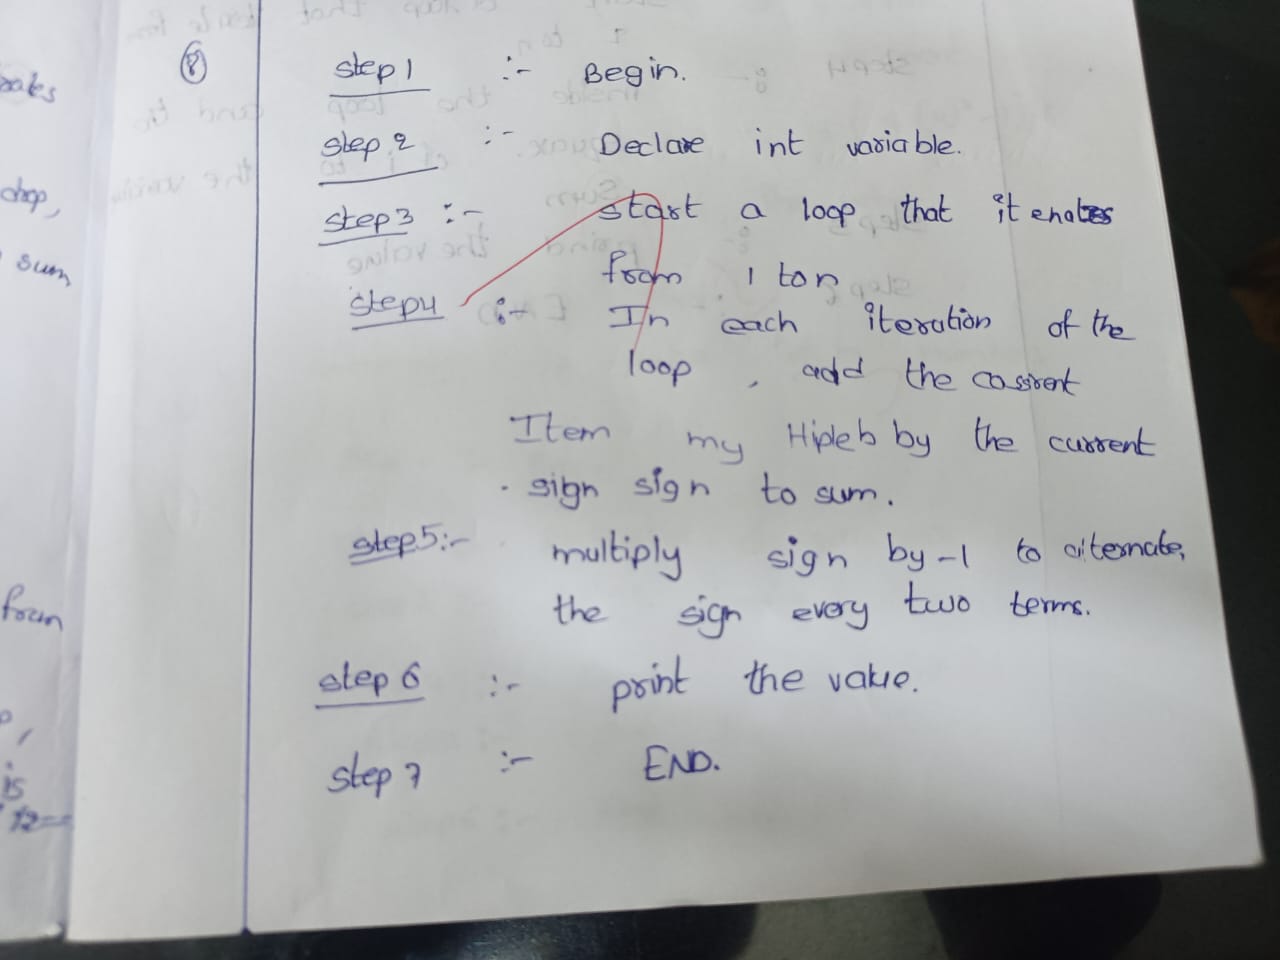 oates
drop,
sum
from
is
12
8
step 1 :- Begin.
step 2 :- Declare int variable.
step3 :- start a loop that itenates
from 1 to n
step4 :- In each iteration of the
loop, add the cassrent
Item my Hipleb by the current
sign sign to sum.
step5:- multiply sign by -1 to alternate,
the sign every two terms.
step 6 :- print the value.
step 7 :- END.